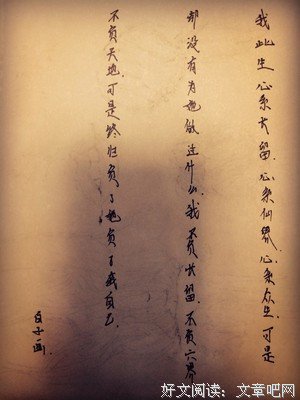 我此生，心系长留，心系仙界，心系众生，可是
却没有为她做过什么。我不负长留，不负六界，
不负天地，可是终归负了她，负了我自己。
白子画
好文阅读：文章吧网